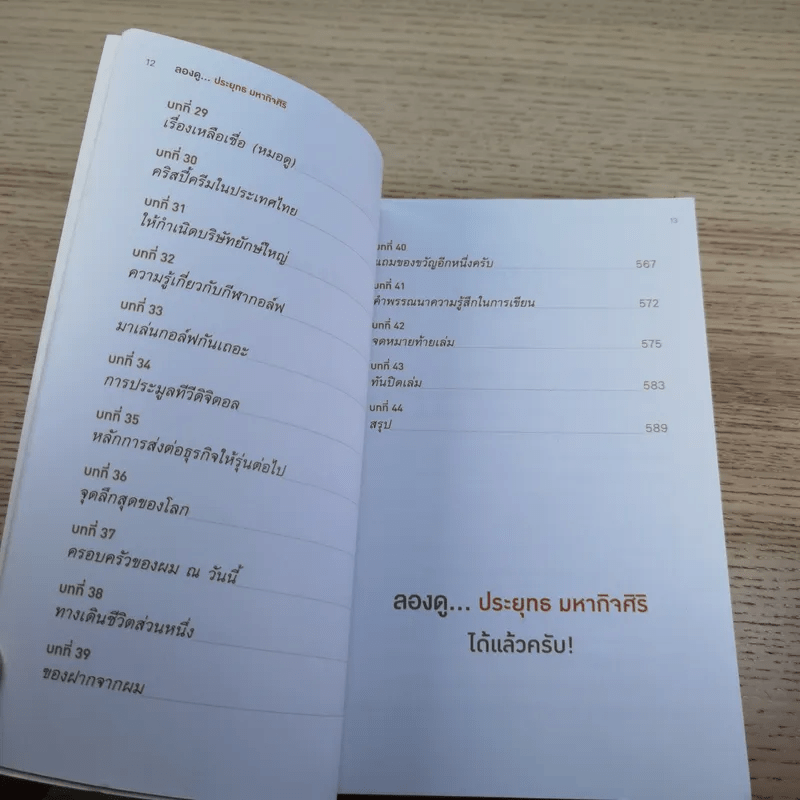 12 ลองดู... ประยุทธ มหากิจศิริ
บทที่ 29
เรื่องเหลือเชื่อ (หมอดู)
บทที่ 30
คริสปี้ครีมในประเทศไทย
บทที่ 31
ให้กำเนิดบริษัทยักษ์ใหญ่
บทที่ 32
ความรู้เกี่ยวกับกีฬากอล์ฟ
บทที่ 33
มาเล่นกอล์ฟกันเถอะ
บทที่ 34
การประมูลทีวีดิจิตอล
บทที่ 35
หลักการส่งต่อธุรกิจให้รุ่นต่อไป
บทที่ 36
จุดลึกสุดของโลก
บทที่ 37
ครอบครัวของผม ณ วันนี้
บทที่ 38
ทางเดินชีวิตส่วนหนึ่ง
บทที่ 39
ของฝากจากผม
13
บทที่ 40
แถมของขวัญอีกหนึ่งครับ 567
บทที่ 41
คำพรรณนาความรู้สึกในการเขียน 572
บทที่ 42
จดหมายท้ายเล่ม 575
บทที่ 43
ทันปิดเล่ม 583
บทที่ 44
สรุป 589
ลองดู... ประยุทธ มหากิจศิริ
ได้แล้วครับ!